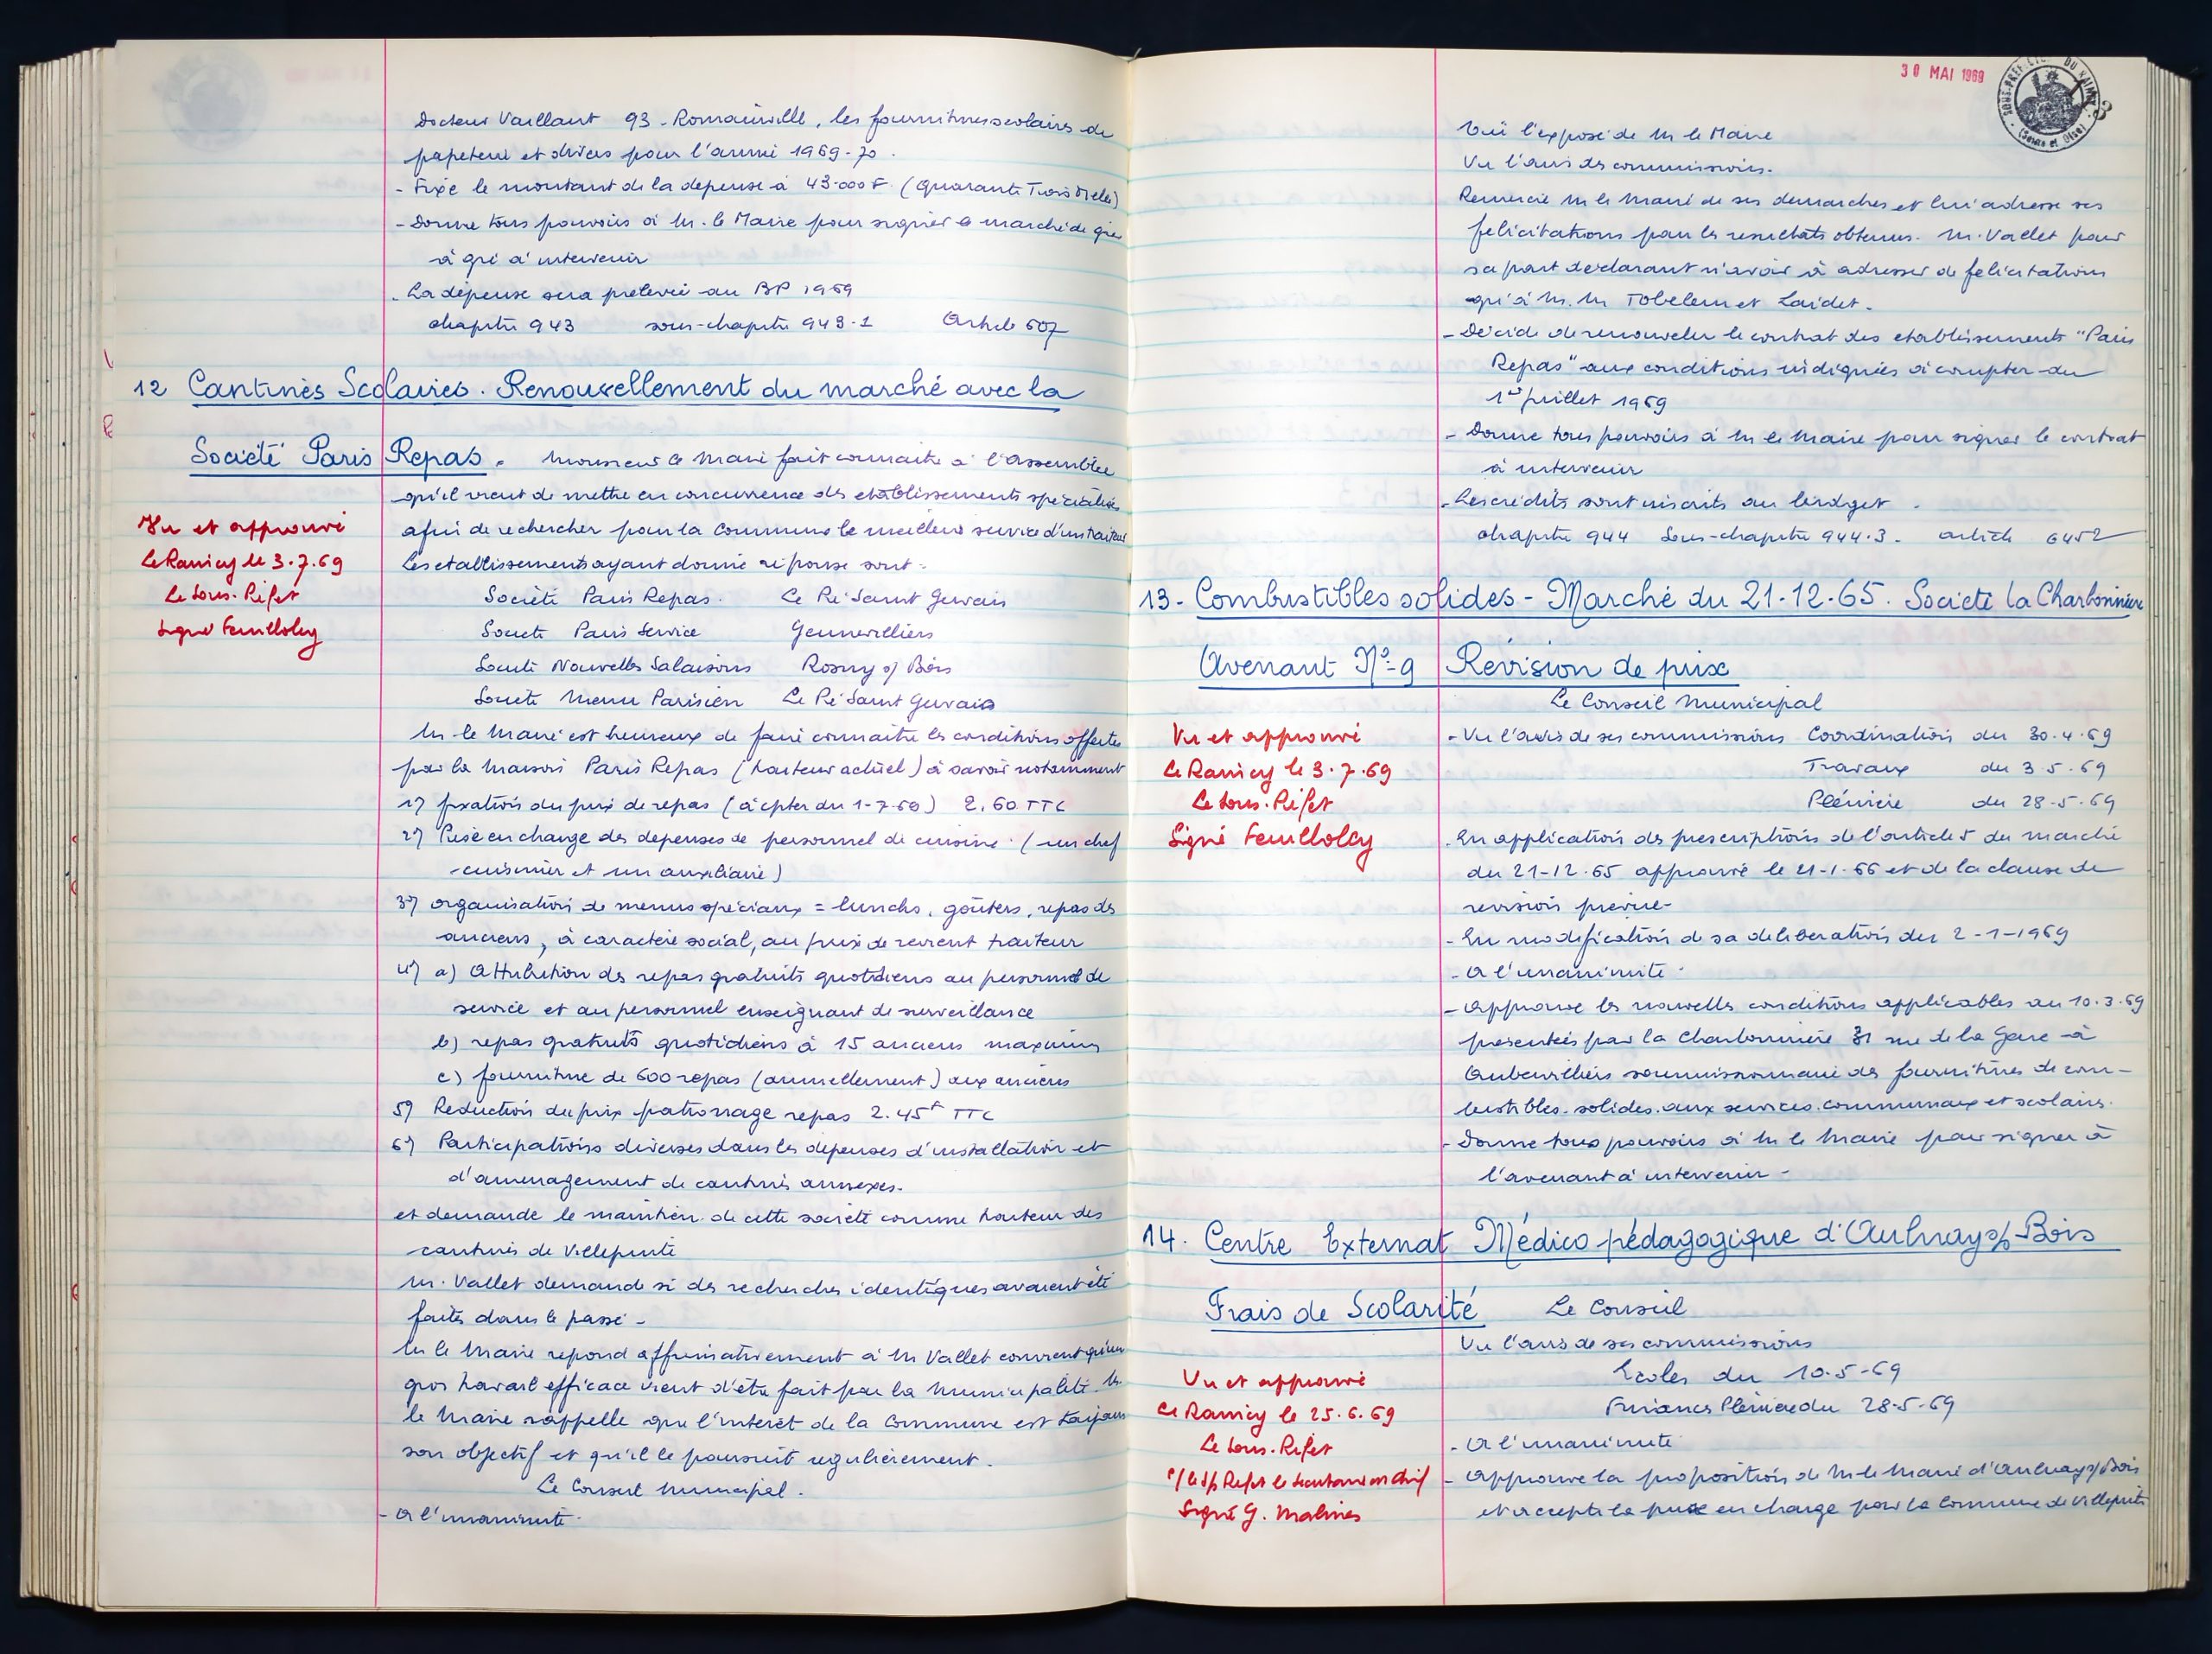 Docteur Vaillant 93 - Romainville, les fournitures scolaires de
papeterie et divers pour l'année 1969-70.
- Fixe le montant de la depense à 43.000 F. (quarante Trois Mille)
- Donne tous pouvoirs à M. le Maire pour signer le marché de gré
à gré à intervenir
- La dépense sera prelevée au BP 1969
chapitre 943 sous-chapitre 943-1 Article 607
12 Cantines Scolaires. Renouvellement du marché avec la
Société Paris Repas. Monsieur le Maire fait connaitre à l'assemblée
qu'il vient de mettre en concurrence des etablissements spécialisés
afin de rechercher pour la Commune le meilleur service d'un traiteur
Les etablissements ayant donné réponse sont :
Société Paris Repas. Le Pré Saint Gervais
Société Paris Service Gennevilliers
Société Nouvelles Salaisons Rosny s/ Bois
Societe Menu Parisien Le Pré Saint Gervais
M. le Maire est heureux de faire connaitre les conditions offertes
par la Maison Paris Repas (traiteur actuel) à savoir notamment
1°) fixation du prix de repas (à cpter du 1-7-69) 2,60 TTC
2°) Prise en charge des depenses de personnel de cuisine (un chef
cuisinier et un auxiliaire)
3°) organisation de menus spéciaux = lunchs, goûters, repas des
anciens, à caractère social, au prix de revient traiteur
4°) a) Attribution des repas gratuits quotidiens au personnel de
service et au personnel enseignant de surveillance
b) repas gratuits quotidiens à 15 anciens maximum
c) fourniture de 600 repas (annuellement) aux anciens
5°) Reduction du prix patronage repas 2.45F TTC
6°) Participations diverses dans les dépenses d'installation et
d'amenagement de cantines annexes.
et demande le maintien de cette société comme traiteur des
cantines de Villepinte
M. Vallet demande si des recherches identiques avaient été
faites dans le passé -
M le Maire repond affirmativement à M Vallet convient qu'un
gros travail efficace vient d'être fait par la Municipalité. M
le Maire rappelle que l'interêt de la Commune est toujours
son objectif et qu'il le poursuit regulièrement.
Le Conseil Municipal.
- A l'unanimité.
Vu et approuvé
Le Raincy le 3.7.69
Le Sous-Préfet
Signé Feuilloley
30 MAI 1969
SOUS-PRÉFECTURE DU RAINCY
(Seine et Oise)
Vu l'exposé de M le Maire
Vu l'avis des commissions.
Remercie M le Maire de ses demarches et lui adresse ses
felicitations pour les resultats obtenus. M. Vallet pour
sa part declarant n'avoir à adresser de felicitations
qu'à M. M Tobelem et Laidet.
- Décide de renouveler le contrat des etablissements "Paris
Repas" aux conditions indiquées à compter du
1er juillet 1969
- Donne tous pouvoirs à M le Maire pour signer le contrat
à intervenir
- Les crédits sont inscrits au budget.
chapitre 944 Sous-chapitre 944.3. article 6452
13 - Combustibles solides - Marché du 21-12-65. Société la Charbonnière
Avenant N° 9 Révision de prix
Le Conseil Municipal
- Vu l'avis de ses commissions Coordination du 30.4.69
Travaux du 3.5.69
Plénière du 28-5-69
- En application des prescriptions de l'article 5 du marché
du 21-12-65 approuvé le 21-1-66 et de la clause de
revision prévue -
- En modification de sa deliberation du 2-1-1969
- A l'unanimité.
- approuve les nouvelles conditions applicables au 10.3.69
presentées par la Charbonnière 31 rue de la Gare à
Aubervilliers soumissionnaire des fournitures de com-
bustibles solides aux services communaux et scolaires.
- Donne tous pouvoirs à M le Maire pour signer à
l'avenant à intervenir -
Vu et approuvé
Le Raincy le 3.7.69
Le Sous-Préfet
Signé Feuilloley
14. Centre Externat Médico pédagogique d'Aulnay s/ Bois
Frais de Scolarité Le Conseil
Vu l'avis de ses commissions
Ecoles du 10-5-69
Finances Plénière du 28-5-69
- A l'unanimité
- approuve la proposition de M le Maire d'Aulnay s/ Bois
et accepte la prise en charge par la Commune de Villepinte
Vu et approuvé
Le Raincy le 25.6.69
Le Sous-Préfet
P/ le S/ Préfet le Secretaire en chef
Signé G. Malines